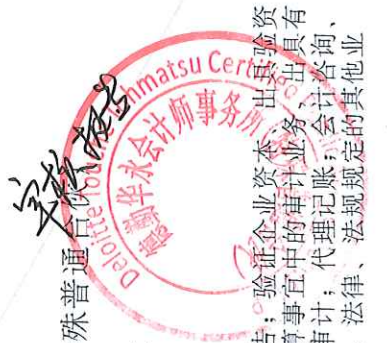 殊普通合伙
告；验证企业资本，出具验资
算事宜中的审计业务，出具有
审计；代理记账；会计咨询、
法律、法规规定的其他业
Deloitte Tou hmatsu Certi
德勤华永会计师事务所